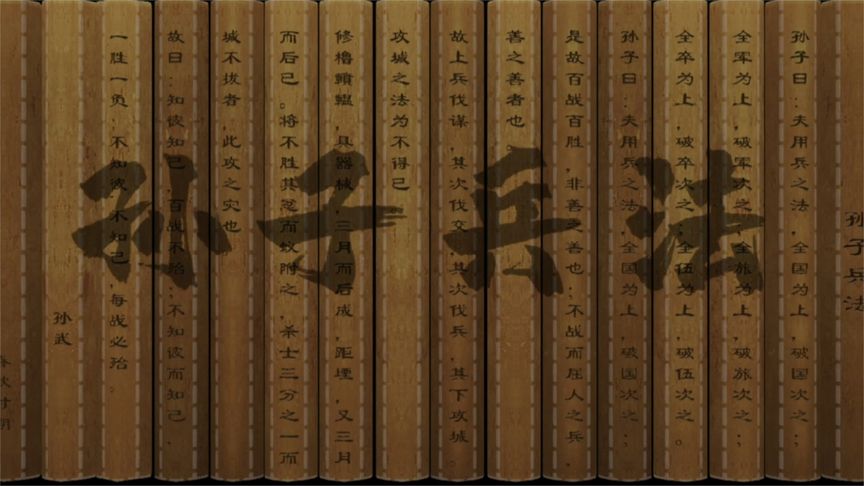 孙子兵法
孙子兵法
孙子曰:夫用兵之法,全国为上,破国次之;
全军为上,破军次之;全旅为上,破旅次之;
全卒为上,破卒次之;全伍为上,破伍次之。
孙子曰:夫用兵之法,全国为上,破国次之;
是故百战百胜,非善之善也;不战而屈人之兵,
善之善者也。
故上兵伐谋,其次伐交,其次伐兵,其下攻城。
攻城之法为不得已
修橹轒辒,具器械,三月而后成,距堙,又三月
而后已。将不胜其忿而蚁附之,杀士三分之一而
城不拔者,此攻之灾也
故曰:知彼知己,百战不殆;不知彼而知己,
一胜一负;不知彼,不知己,每战必殆。
孙武